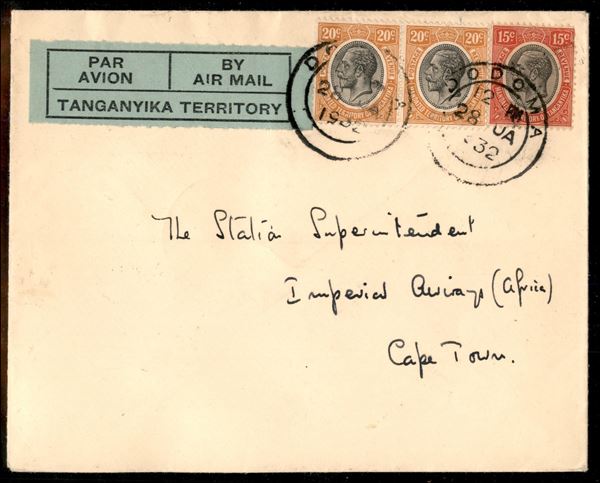 PAR AVION
BY AIR MAIL
TANGANYIKA TERRITORY
20c 20c 20c 20c 15c 15c
DODOMA
28
1932
The Station Superintendent
Imperial Airways (Africa)
Cape Town.